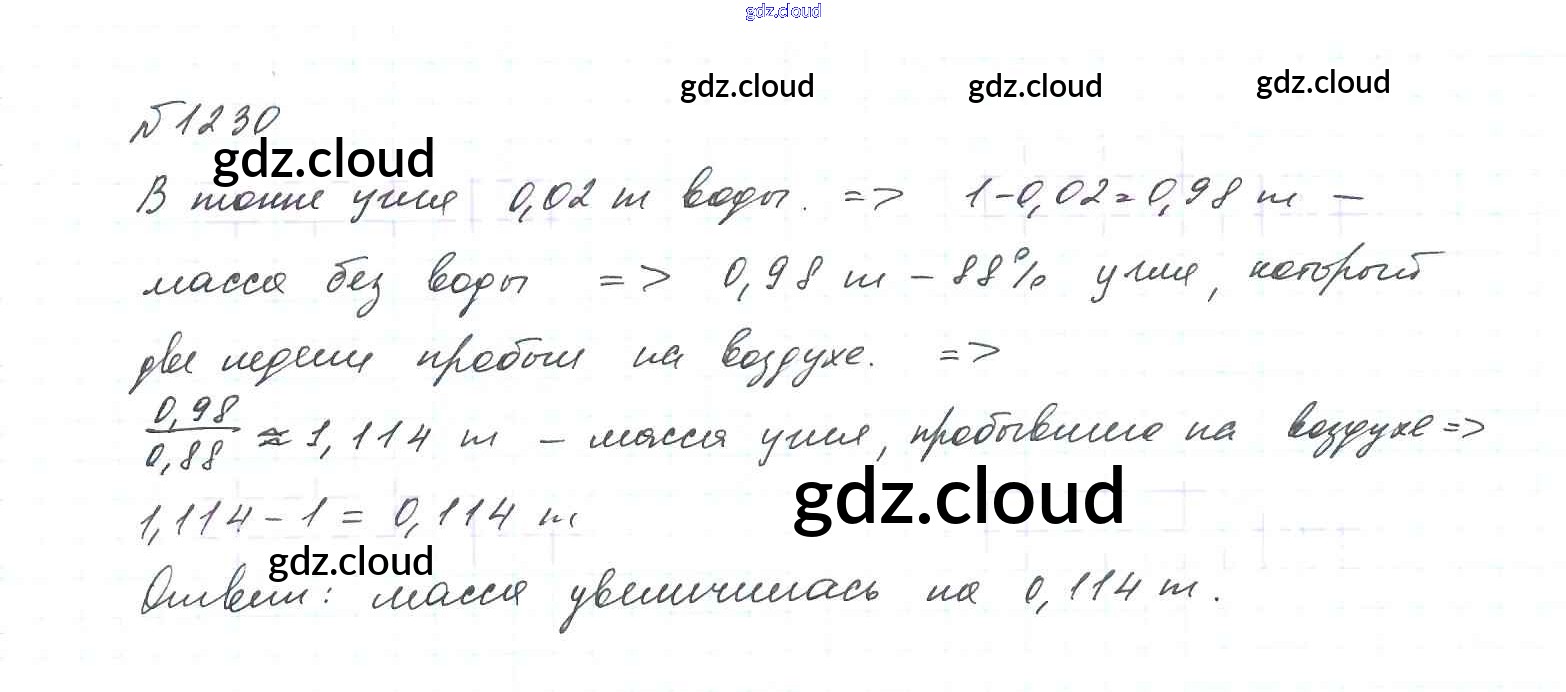 gdz.cloud
gdz.cloud gdz.cloud gdz.cloud
№1230
gdz.cloud
В тонне угля 0,02 т воды. => 1-0,02=0,98 т –
масса без воды => 0,98 т – 88% угля, который
две недели пробыл на воздухе. =>
0,98/0,88 ≈ 1,114 т – масса угля, пробывшего на воздухе =>
gdz.cloud
1,114 – 1 = 0,114 т
gdz.cloud
Ответ: масса увеличилась на 0,114 т.